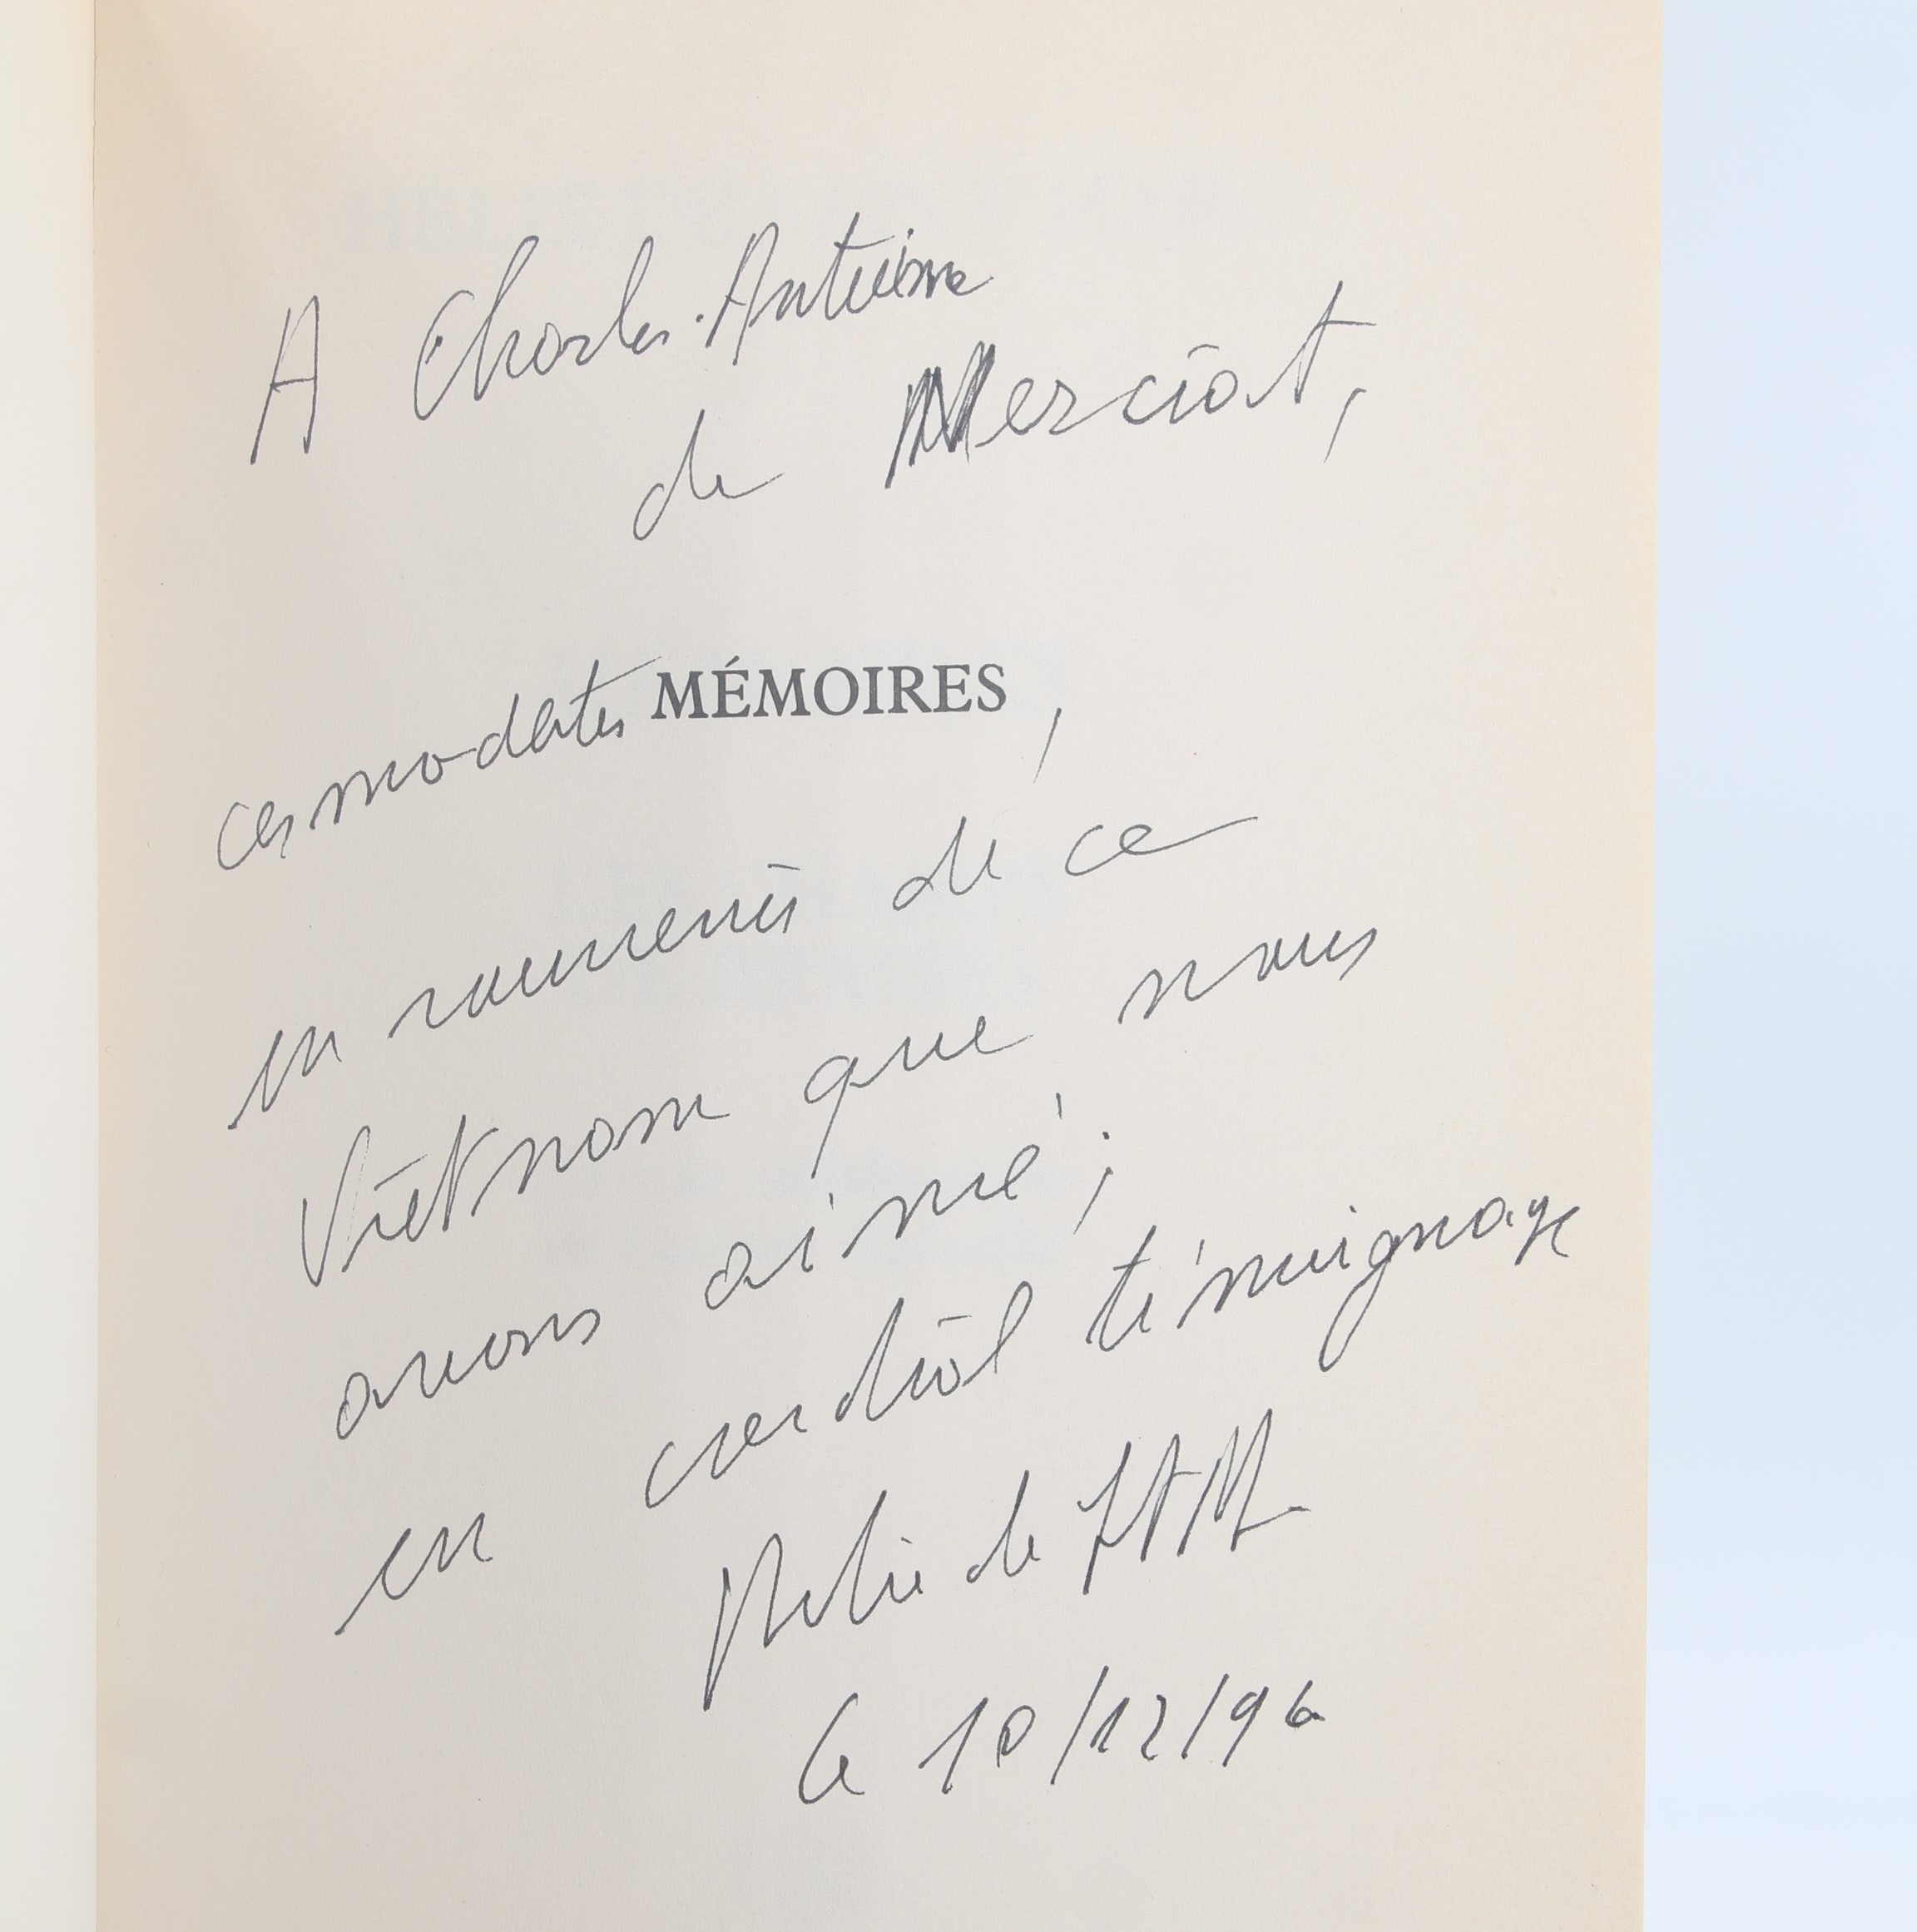 A Charles-Antoine
de Nerciat,
ces modestes MÉMOIRES,
en souvenir de ce
Vietnam que nous
avons aimé ;
en cordial témoignage
Hélie de St M
le 10/12/96